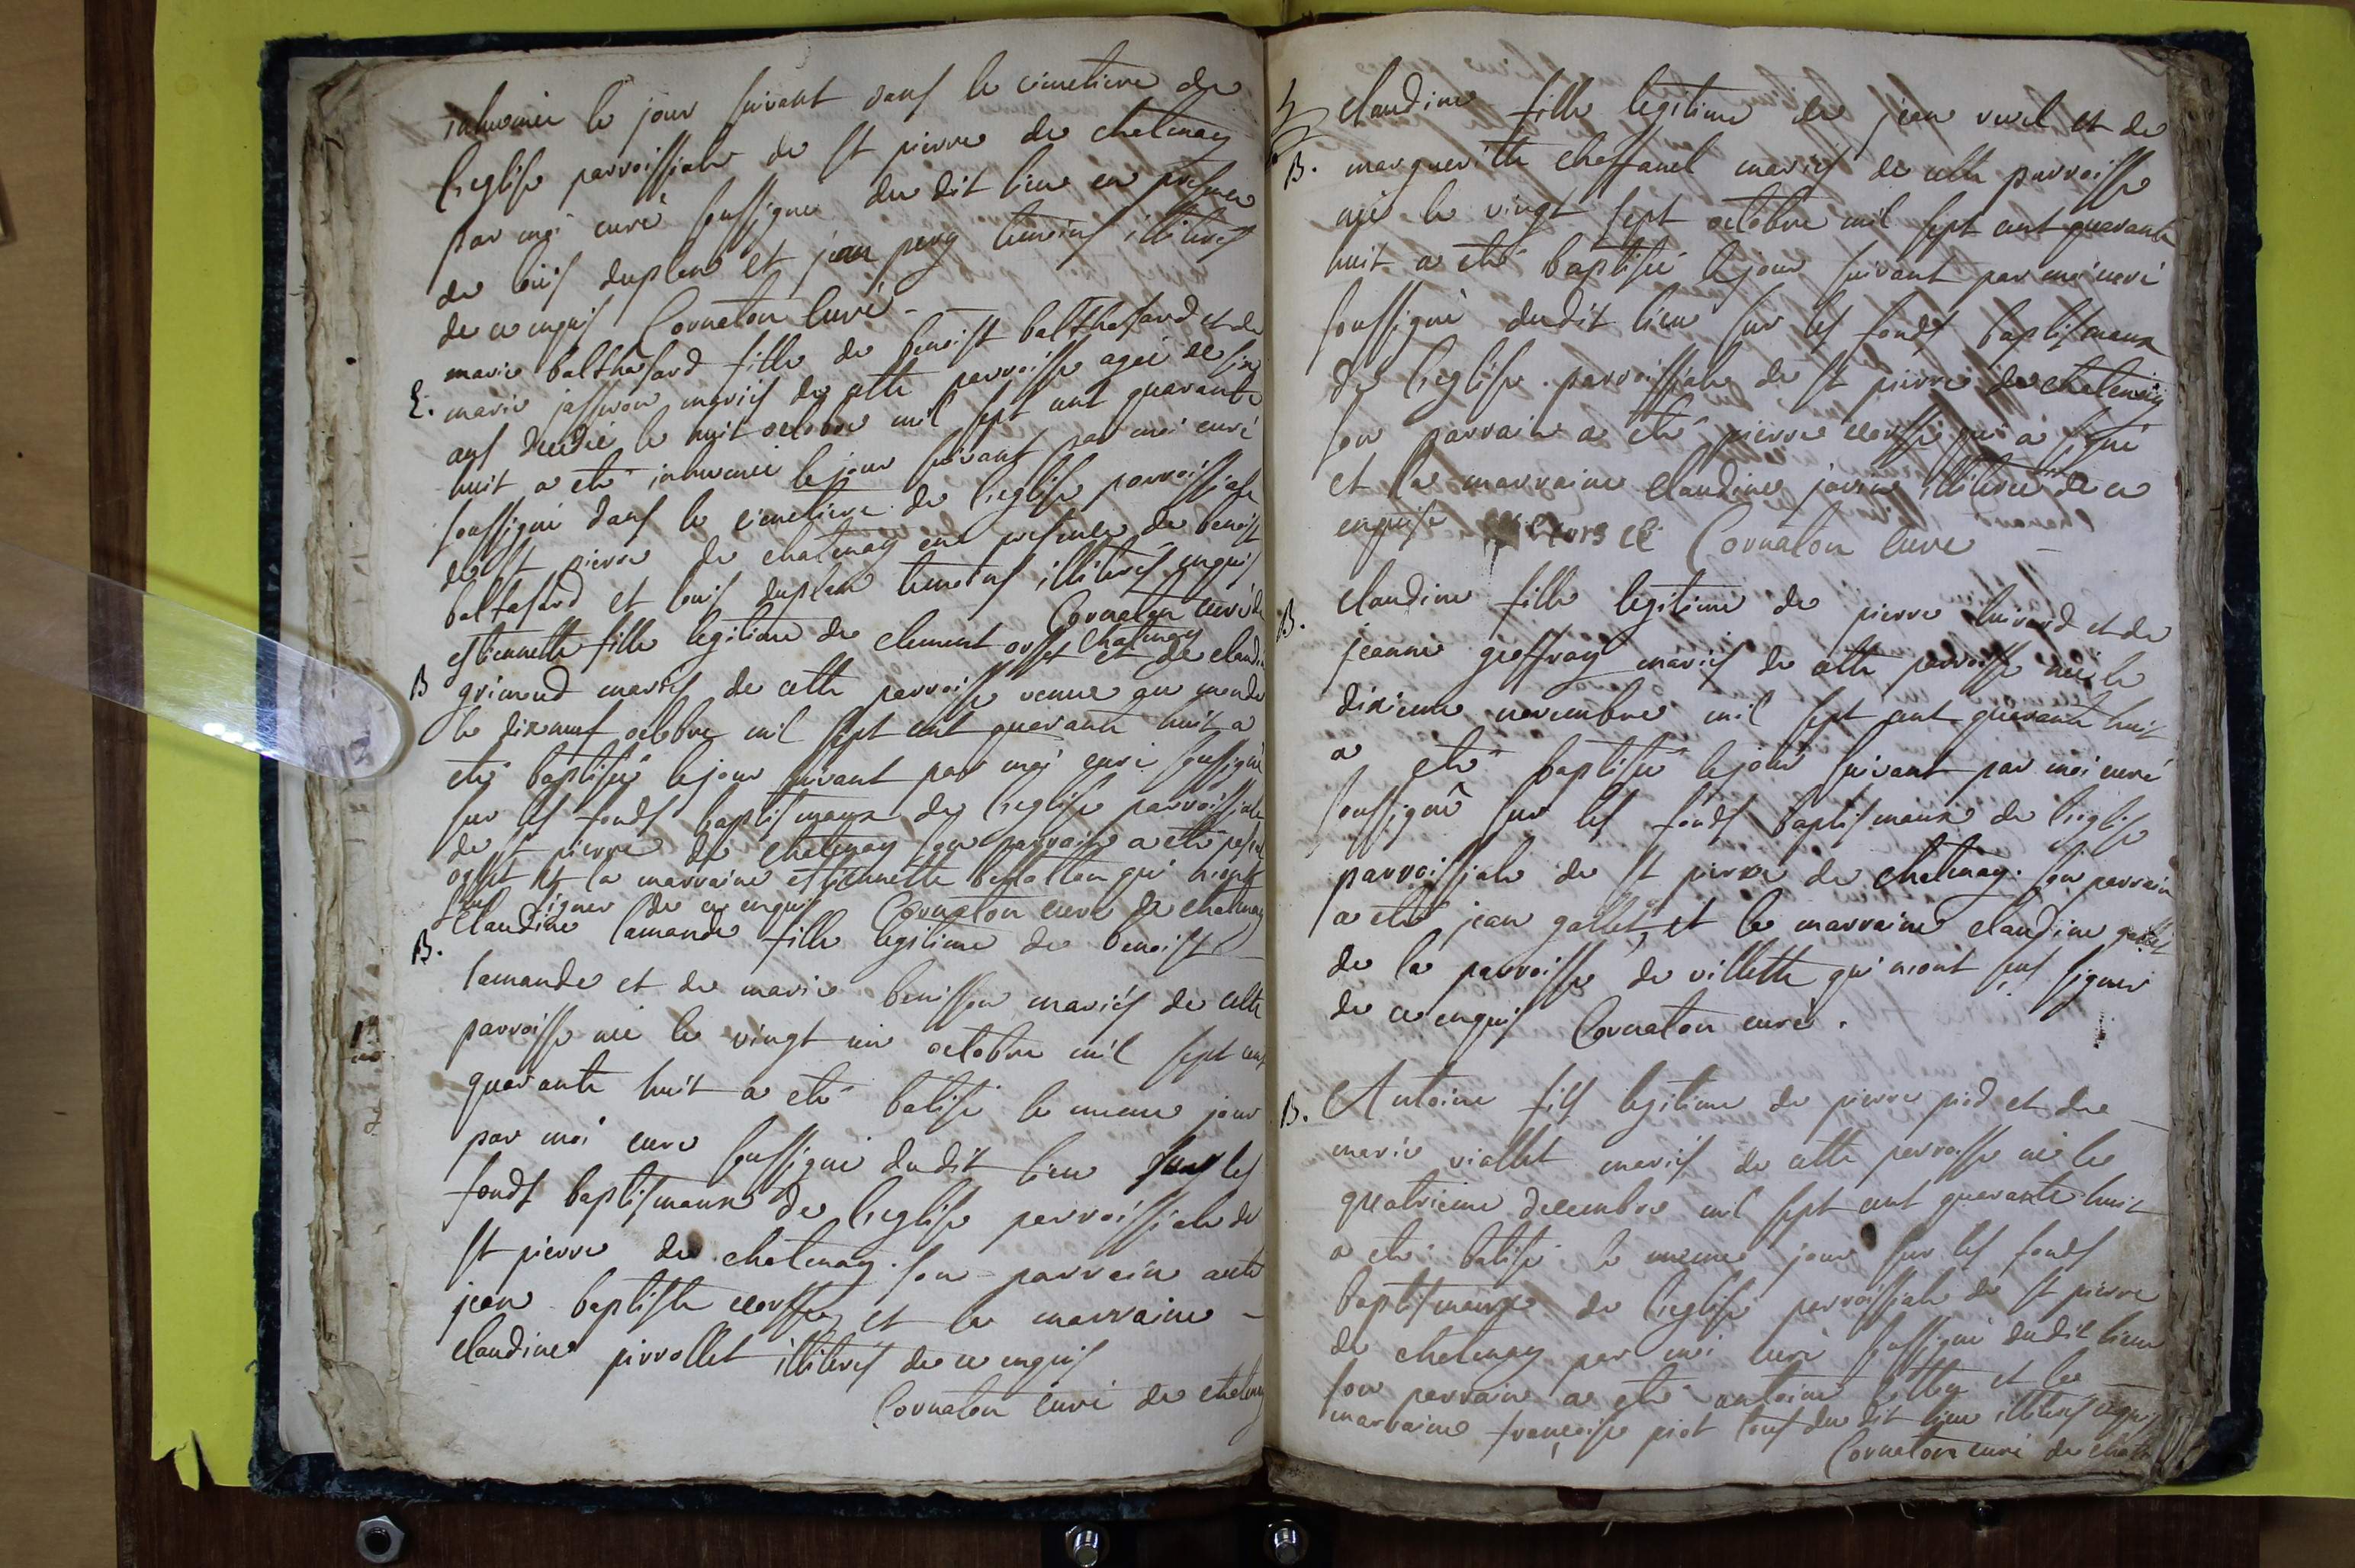 inhumée le jour suivant dans le cimetiere de
l'eglise parroissiale de st pierre de chatenay
par moi curé soussigné du dit lieu en presence
de loüis duplan et jean pery temoins illiteres
de ce enquis Cornaton curé
marie balthasard fille de benoist balthasard et de
E. marie jasseron mariés de cette parroisse agée de six
ans decedée le huit octobre mil sept cent quarante
huit a eté inhumée le jour suivant par moi curé
soussigné dans le cimetiere de l'eglise parroissiale
de st pierre de chatenay en presence de benoist
baltasard et louis duplan temoins illiteres enquis
Cornaton curé de
chatenay
estiennette fille legitime de clement orset et de claudine
B grimond mariés de cette parroisse venue au monde
le dixneuf octobre mil sept cent quarante huit a
eté baptisée le jour suivant par moi curé soussigné
sur les fonds baptismaux de l'eglise parroissiale
de st pierre de chatenay son parrain a eté
orset et la marraine estiennette qui n'ont
sceu signer de ce enquis Cornaton curé de chatenay
B. Claudine lamande fille legitime de benoist
lamande et de marie benisson mariés de cette
parroisse née le vingt un octobre mil sept cent
quarante huit a eté batisé le meme jour
par moi curé soussigné dudit lieu sur les
fonds baptismaux de l'eglise parroissiale de
st pierre de chatenay. son parrain a eté
jean baptiste et la marraine
claudine pirollet illiteres de ce enquis
Cornaton curé de chatenay
claudine fille legitime de jean vuel et de
B. margueritte chaffanel mariés de cette parroisse
née le vingt sept octobre mil sept cent quarante
huit a eté baptisée le jour suivant par moi curé
soussigné dudit lieu sur les fonds baptismaux
de l'eglise parroissiale de st pierre de chatenay
son parrain a eté pierre qui a signé
et la marraine claudine javine illiterée de ce
enquise Cornaton curé
B. claudine fille legitime de pierre luirard et de
jeanne gieffray mariés de cette parroisse née le
dixieme novembre mil sept cent quarante huit
a eté baptisée le jour suivant par moi curé
soussigné sur les fonds baptismaux de l'eglise
parroissiale de st pierre de chatenay. son parrain
a eté jean gallet, et la marraine claudine gallet
de la parroisse de villette qui n'ont sçus signer
de ce enquis Cornaton curé.
B. Antoine fils legitime de pierre piod et de
marie viallet mariés de cette parroisse né le
quatrieme decembre mil sept cent quarante huit
a eté batisé le meme jour sur les fonds
baptismaux de l'eglise parroissiale de st pierre
de chatenay par moi curé soussigné dudit lieu
son parrain a eté antoine et la
marraine françoise piot tous du dit lieu illiteres enquis
Cornaton curé de chat